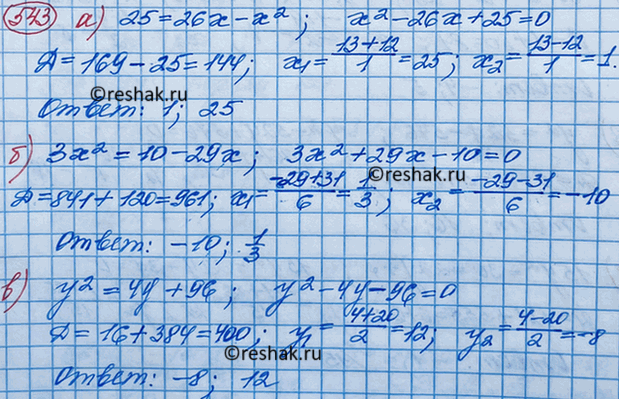 543 а) 25=26x-x²; x²-26x+25=0
Д=169-25=144; x₁=(13+12)/1=25; x₂=(13-12)/1=1.
Ответ: 1; 25
©reshak.ru
б) 3x²=10-29x; 3x²+29x-10=0
Д=841+120=961; x₁=(-29+31)/6=1/3; x₂=(-29-31)/6=-10
©reshak.ru
Ответ: -10; 1/3
в) y²=4y+96; y²-4y-96=0
Д=16+384=400; y₁=(4+20)/2=12; y₂=(4-20)/2=-8
©reshak.ru
Ответ: -8; 12